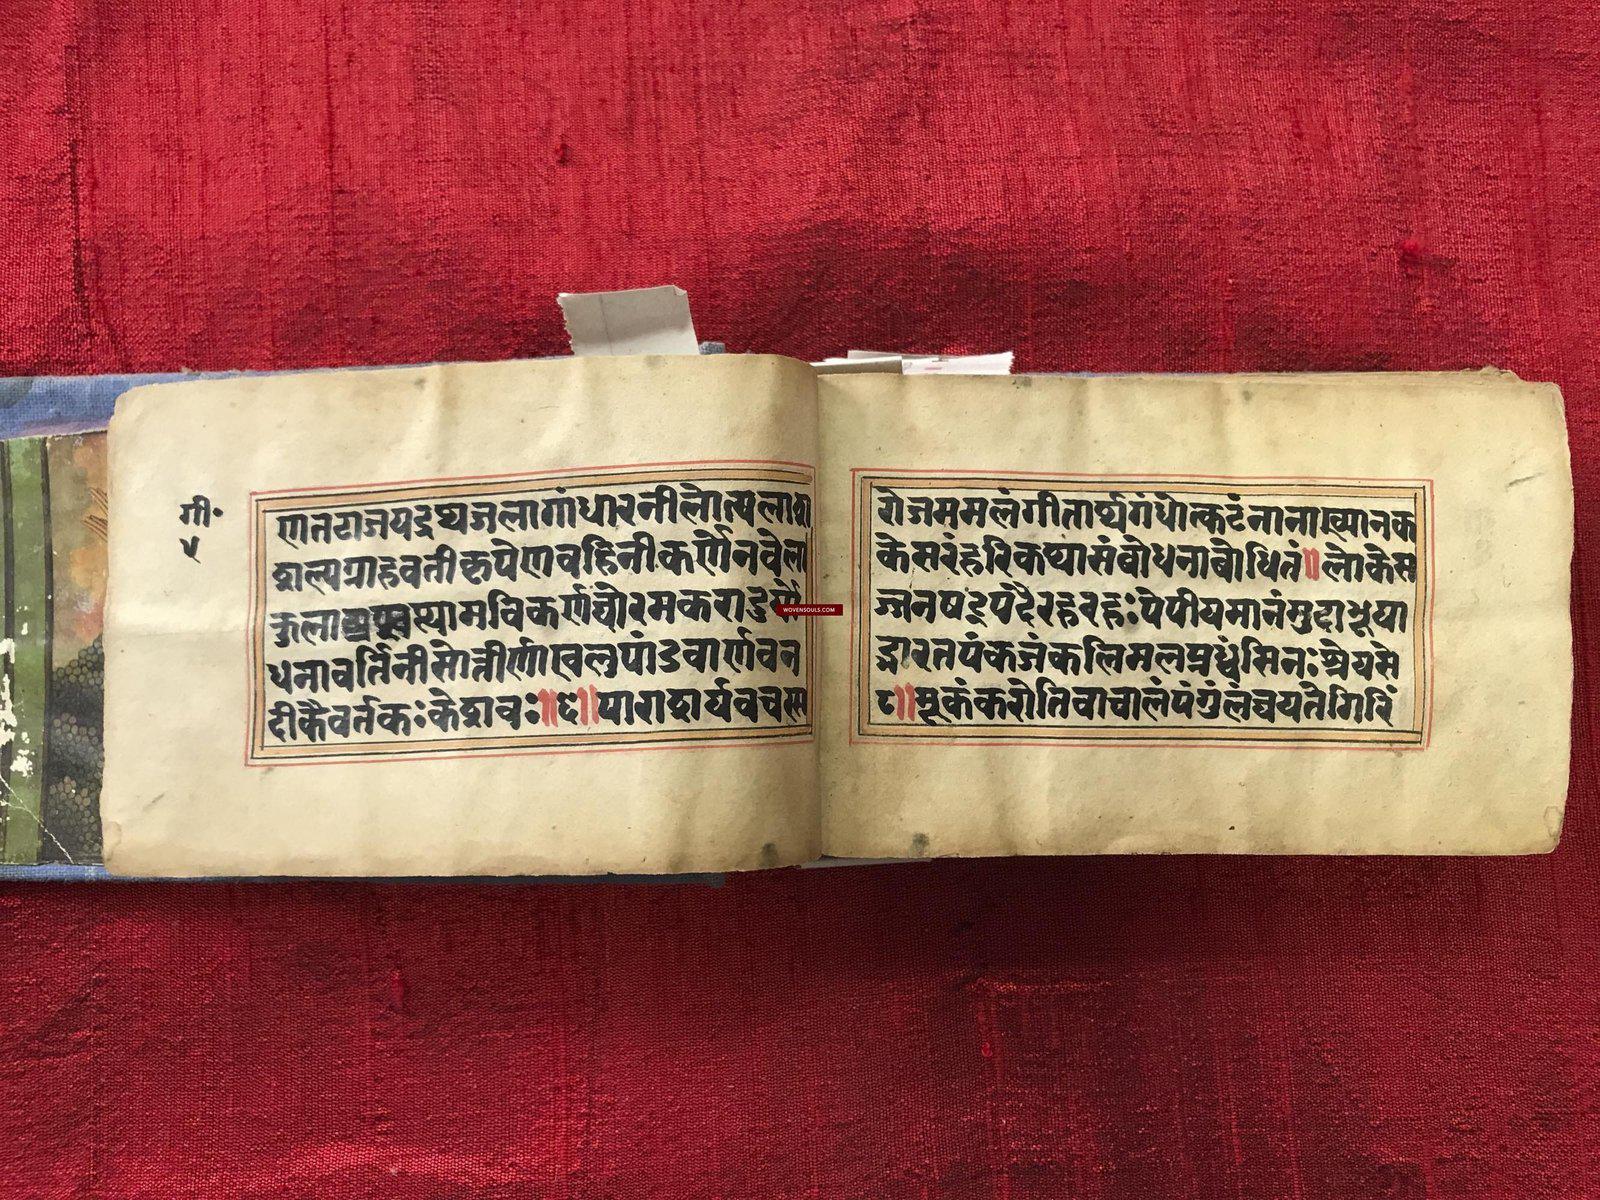 गी॰
५
णातटाजयद्रथजलागांधारनीलोत्पलाश
द्वाल्यग्राहवतीकृपेणवहिनीकर्णेनवेला
कुलाश्वत्थामविकर्णघोरमकरादुर्यो
धनावर्तिनीसोत्तीर्णाखलुपांडवार्णवन
दीकैवर्तकःकेशवः॥६॥पाराशर्यवचस्स
रोजममलंगीतार्थगंधोत्कटंनानाख्यानक
केसरंहरिकथासंबोधनाबोधितं॥लोकेस
ज्जनषट्पदैरहरहःपेपीयमानंमुदाभूया
द्भारतपंकजंकलिमलप्रध्वंसिनःश्रेयसे
८॥मूकंकरोतिवाचालंपंगुंलङ्घयतेगिरिं
WOVENSOULS.COM